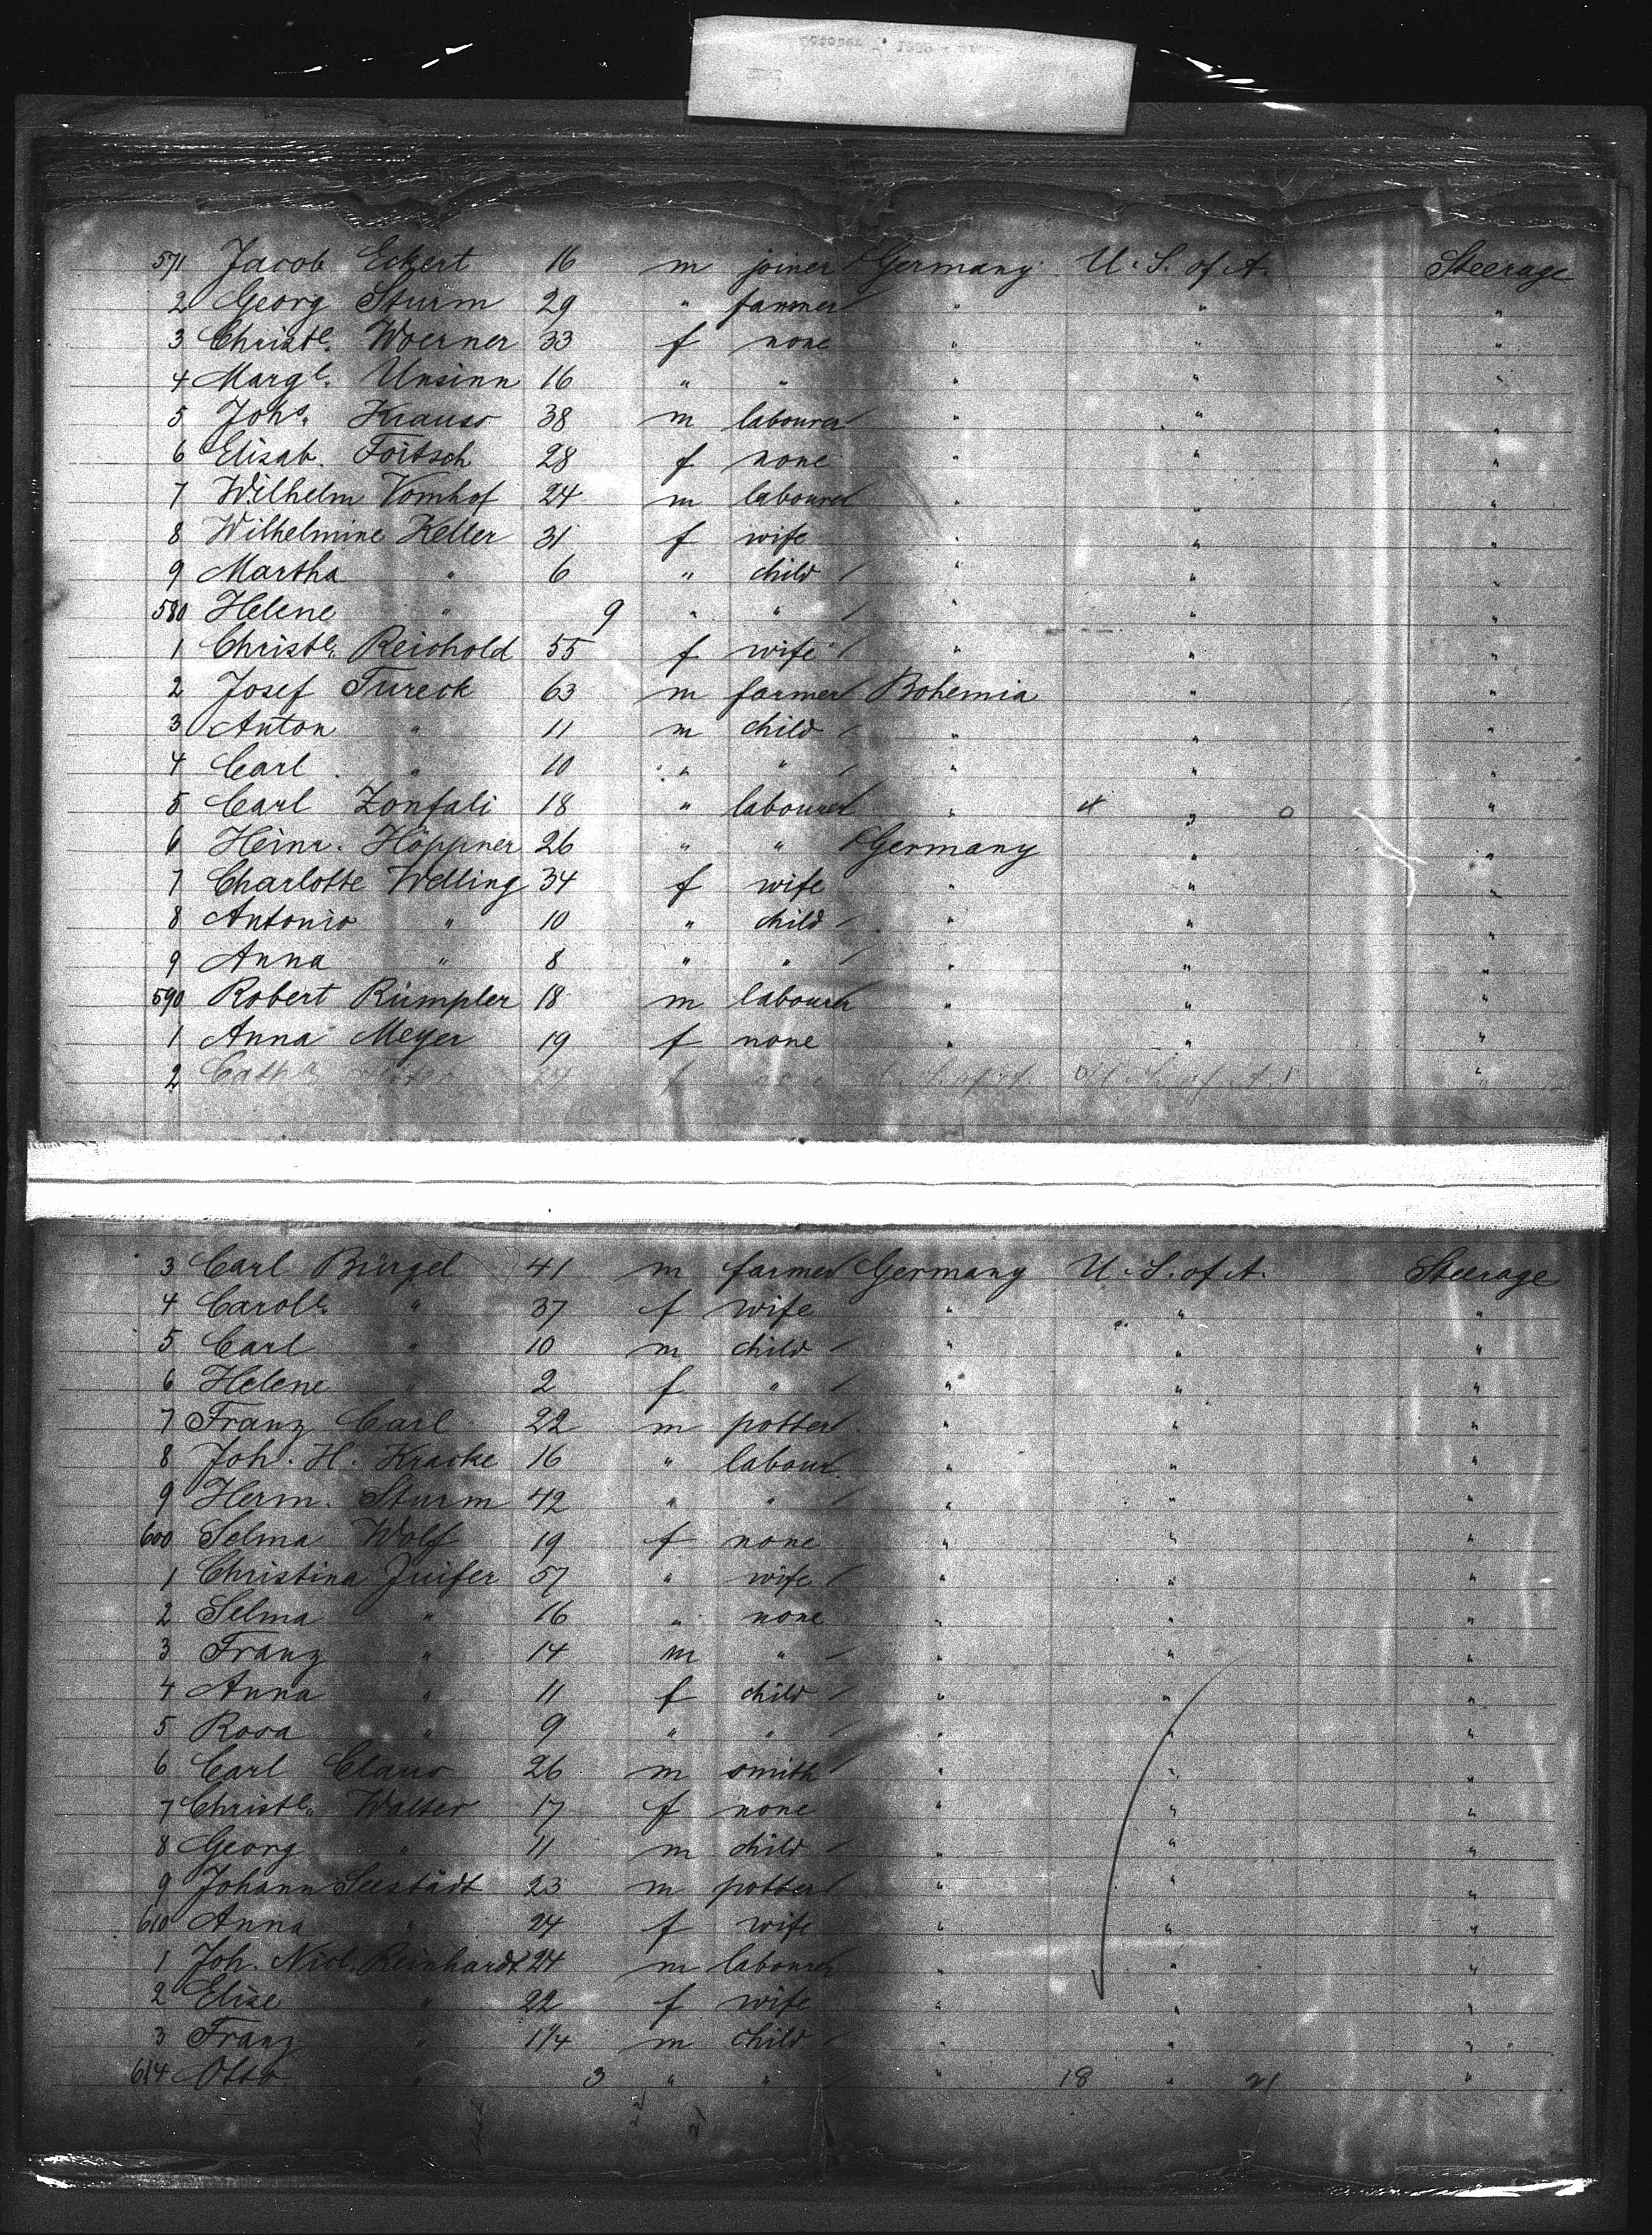 October 1886
571 Jacob Eckert 16 m joiner Germany U. S. of A. Steerage
2 Georg Sturm 29 " farmer " " "
3 Christe. Woerner 33 f none " " "
4 Marge. Unsinn 16 " " " " "
5 Johs. Krauss 38 m labourer " " "
6 Elisab. Foitsch 28 f none " " "
7 Wilhelm Vomhof 24 m labourer " " "
8 Wilhelmine Keller 31 f wife " " "
9 Martha " 6 " child " " "
580 Helene " 9 " " " " "
1 Christe. Reichold 55 f wife " " "
2 Josef Tureck 63 m farmer Bohemia " "
3 Anton " 11 m child " " "
4 Carl " 10 " " " " "
5 Carl Zonfali 18 " labourer " 4 " 0 "
6 Heinr. Höppner 26 " " Germany " "
7 Charlotte Welling 34 f wife " " "
8 Antonio " 10 " child " " "
9 Anna " 8 " " " " "
590 Robert Rümpler 18 m labourer " " "
1 Anna Meyer 19 f none " " "
2 Cathe. 24 f none U. S. of A. U. S. of A. 1 "
3 Carl Bürgel 41 m farmer Germany U. S. of A. Steerage
4 Carole. " 37 f wife " " "
5 Carl " 10 m child " " "
6 Helene " 2 f " " " "
7 Franz Carl 22 m potter " " "
8 Joh. H. Kracke 16 " labour. " " "
9 Herm. Sturm 42 " " " " "
600 Selma Wolf 19 f none " " "
1 Christina Juifer 57 " wife " " "
2 Selma " 16 " none " " "
3 Franz " 14 m " " " "
4 Anna " 11 f child " " "
5 Rosa " 9 " " " " "
6 Carl Claus 26 m smith " " "
7 Christe. Walter 17 f none " " "
8 Georg " 11 m child " " "
9 Johann Seestädt 23 m potter " " "
610 Anna " 24 f wife " " "
1 Joh. Nicl. Reinhardt 24 m labourer " " "
2 Elise " 22 f wife " " "
3 Franz " 1 1/4 m child " " "
614 Otto " 3 " " " 18 " 21 "